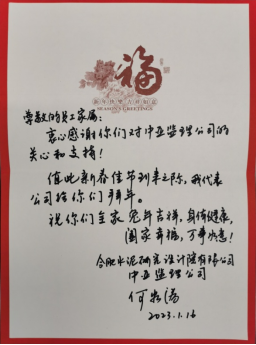 福
新年快乐 吉祥如意
SEASON'S GREETINGS
尊敬的员工家属：
衷心感谢你们对中亚监理公司的
关心和支持！
值此新春佳节到来之际，我代表
公司给你们拜年。
祝你们全家兔年吉祥，身体健康，
阖家幸福，万事如意！
合肥水泥研究设计院有限公司
中亚监理公司
何
2023.1.16